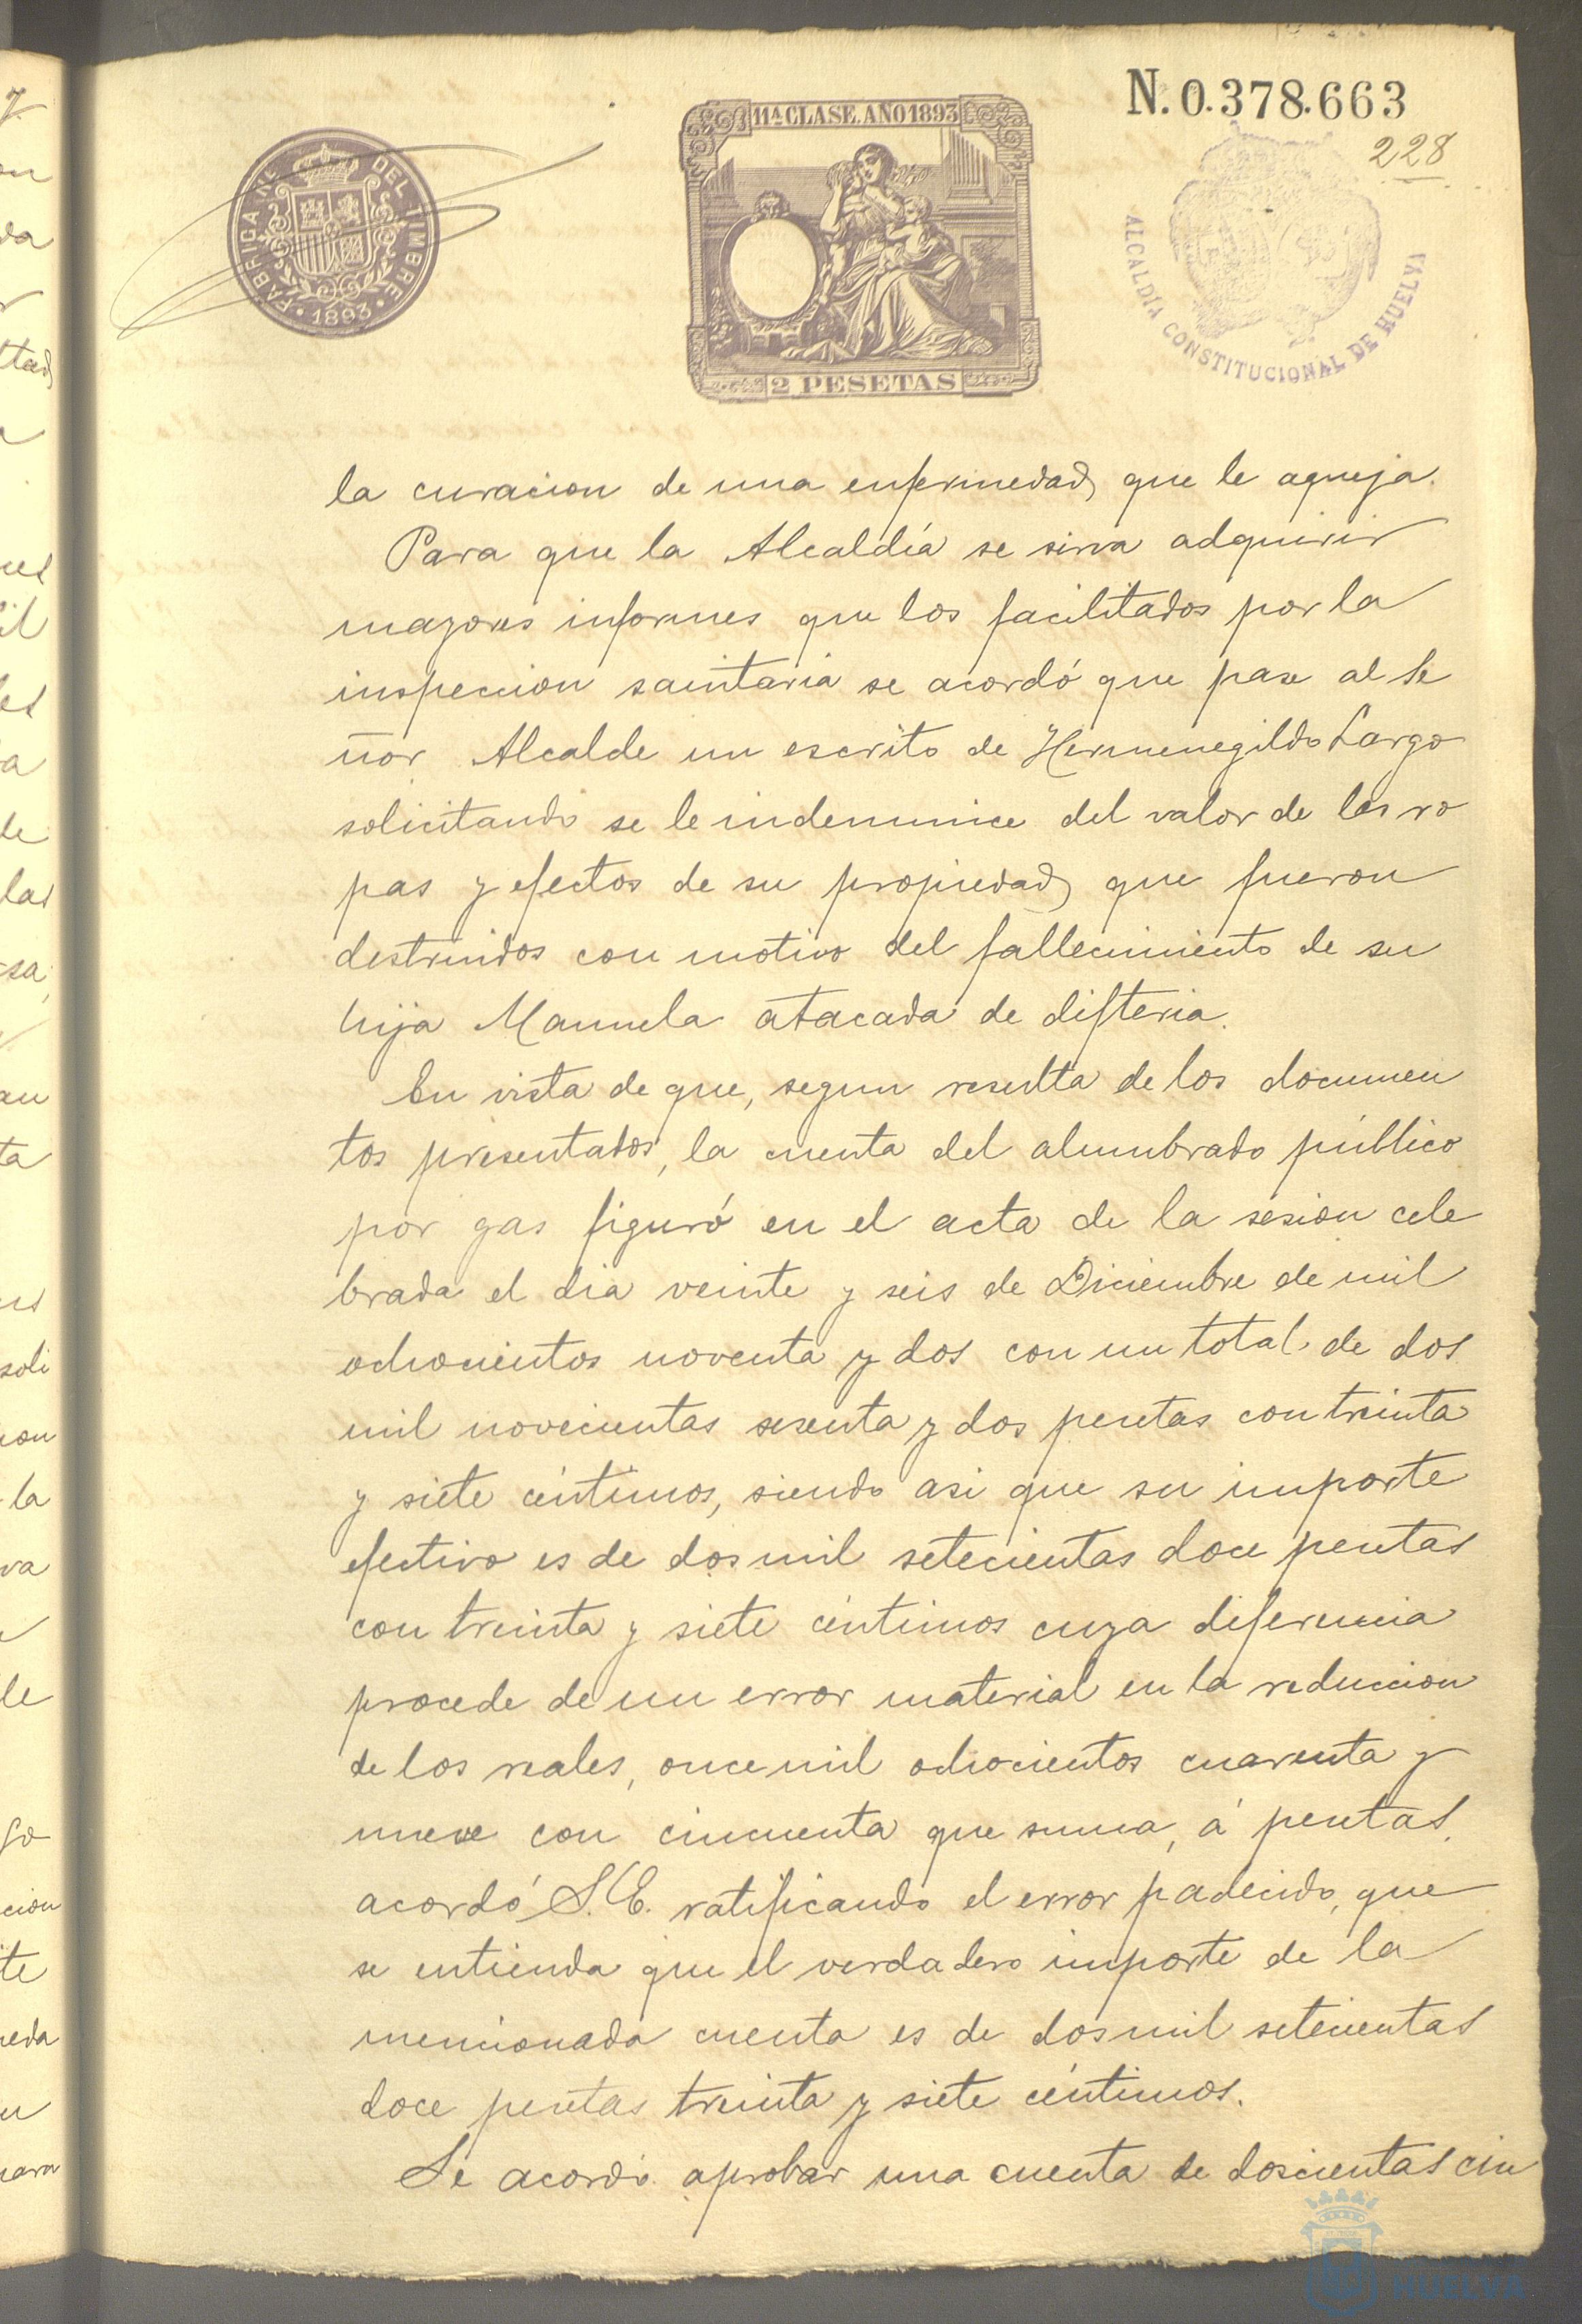 N. 0.378.663
228
11ª CLASE. AÑO 1893
FABRICA NAL DEL TIMBRE
1893
2 PESETAS
ALCALDÍA CONSTITUCIONAL DE HUELVA
la curacion de una enfermedad que le aqueja.
Para que la Alcaldía se sirva adquirir
mayores informes que los facilitados por la
inspeccion sanitaria se acordó que pase al Se
ñor Alcalde un escrito de Hermenegildo Largo
solicitando se le indemnice del valor de las ro
pas y efectos de su propiedad que fueron
destruidos con motivo del fallecimiento de su
hija Manuela atacada de difteria.
En vista de que, segun resulta de los documen
tos presentados, la cuenta del alumbrado público
por gas figuró en el acta de la sesion cele
brada el dia veinte y seis de Diciembre de mil
ochocientos noventa y dos con un total de dos
mil novecientas sesenta y dos pesetas con treinta
y siete céntimos, siendo asi que su importe
efectivo es de dos mil setecientas doce pesetas
con treinta y siete céntimos cuya diferencia
procede de un error material en la reduccion
de los reales, once mil ochocientos cuarenta y
nueve con cincuenta que suma, á pesetas,
acordó S.E. ratificando el error padecido, que
se entienda que el verdadero importe de la
mencionada cuenta es de dos mil setecientas
doce pesetas treinta y siete céntimos.
Se acordó aprobar una cuenta de doscientas cin
HUELVA